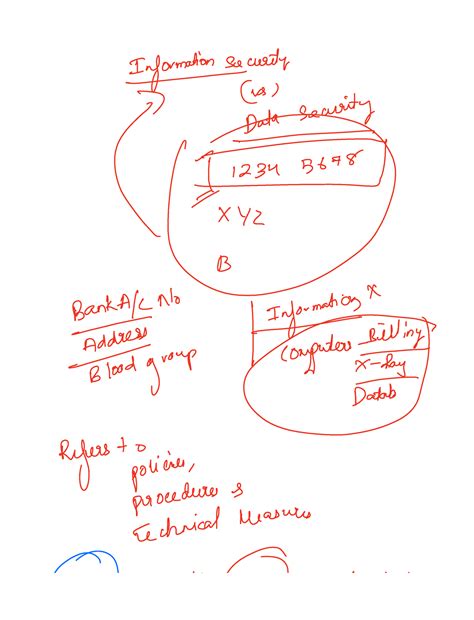 Information Security
(vs)
Data Security
1234 5678
XYZ
B
Bank A/c No
Address
Blood group
Information X
Computers Billing
X-Ray
Datab
Refers to
policies,
procedures
Technical Measures